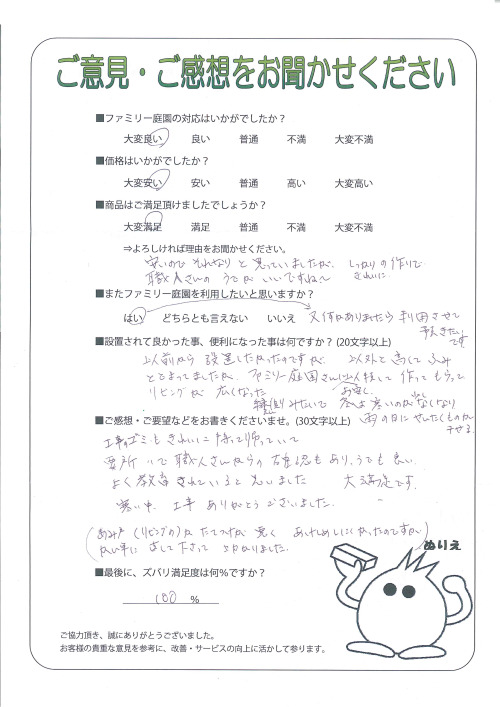 ご意見・ご感想をお聞かせください
■ファミリー庭園の対応はいかがでしたか?
大変良い 良い 普通 不満 大変不満
■価格はいかがでしたか?
大変安い 安い 普通 高い 大変高い
■商品はご満足頂けましたでしょうか?
大変満足 満足 普通 不満 大変不満
⇒よろしければ理由をお聞かせください。
安いので それなりと思っていましたが、しっかりの作りで
職人さんの うでが いいですね〜 きれいに
■またファミリー庭園を利用したいと思いますか?
はい どちらとも言えない いいえ 又何かありましたら利用させて
頂きたい
です
■設置されて良かった事、便利になった事は何ですか?(20文字以上)
以前から 設置したかったのですが、以外と高くて ふみ
とどまってましたが、ファミリー庭園さんに 作ってもらって
リビングが 広くなった
縁側みたいで 冬は寒いのがなくなり
■ご感想・ご要望などをお書きくださいませ。(30文字以上) 雨の日にせんたくものが
干せる
工事のゴミも きれいに 持って帰っていて
要所で職人さんからの確認もあり、とても良い
よく教育されていると思いました 大満足です。
寒い中、工事 ありがとうございました。
(あみ戸(リビングの)が たてつけが 悪く あけしめしにくかったのですが
なおして下さって 助かりました。)
ぬりえ
■最後に、ズバリ満足度は何%ですか?
100 %
ご協力頂き、誠にありがとうございました。
お客様の貴重な意見を参考に、改善・サービスの向上に活かして参ります。